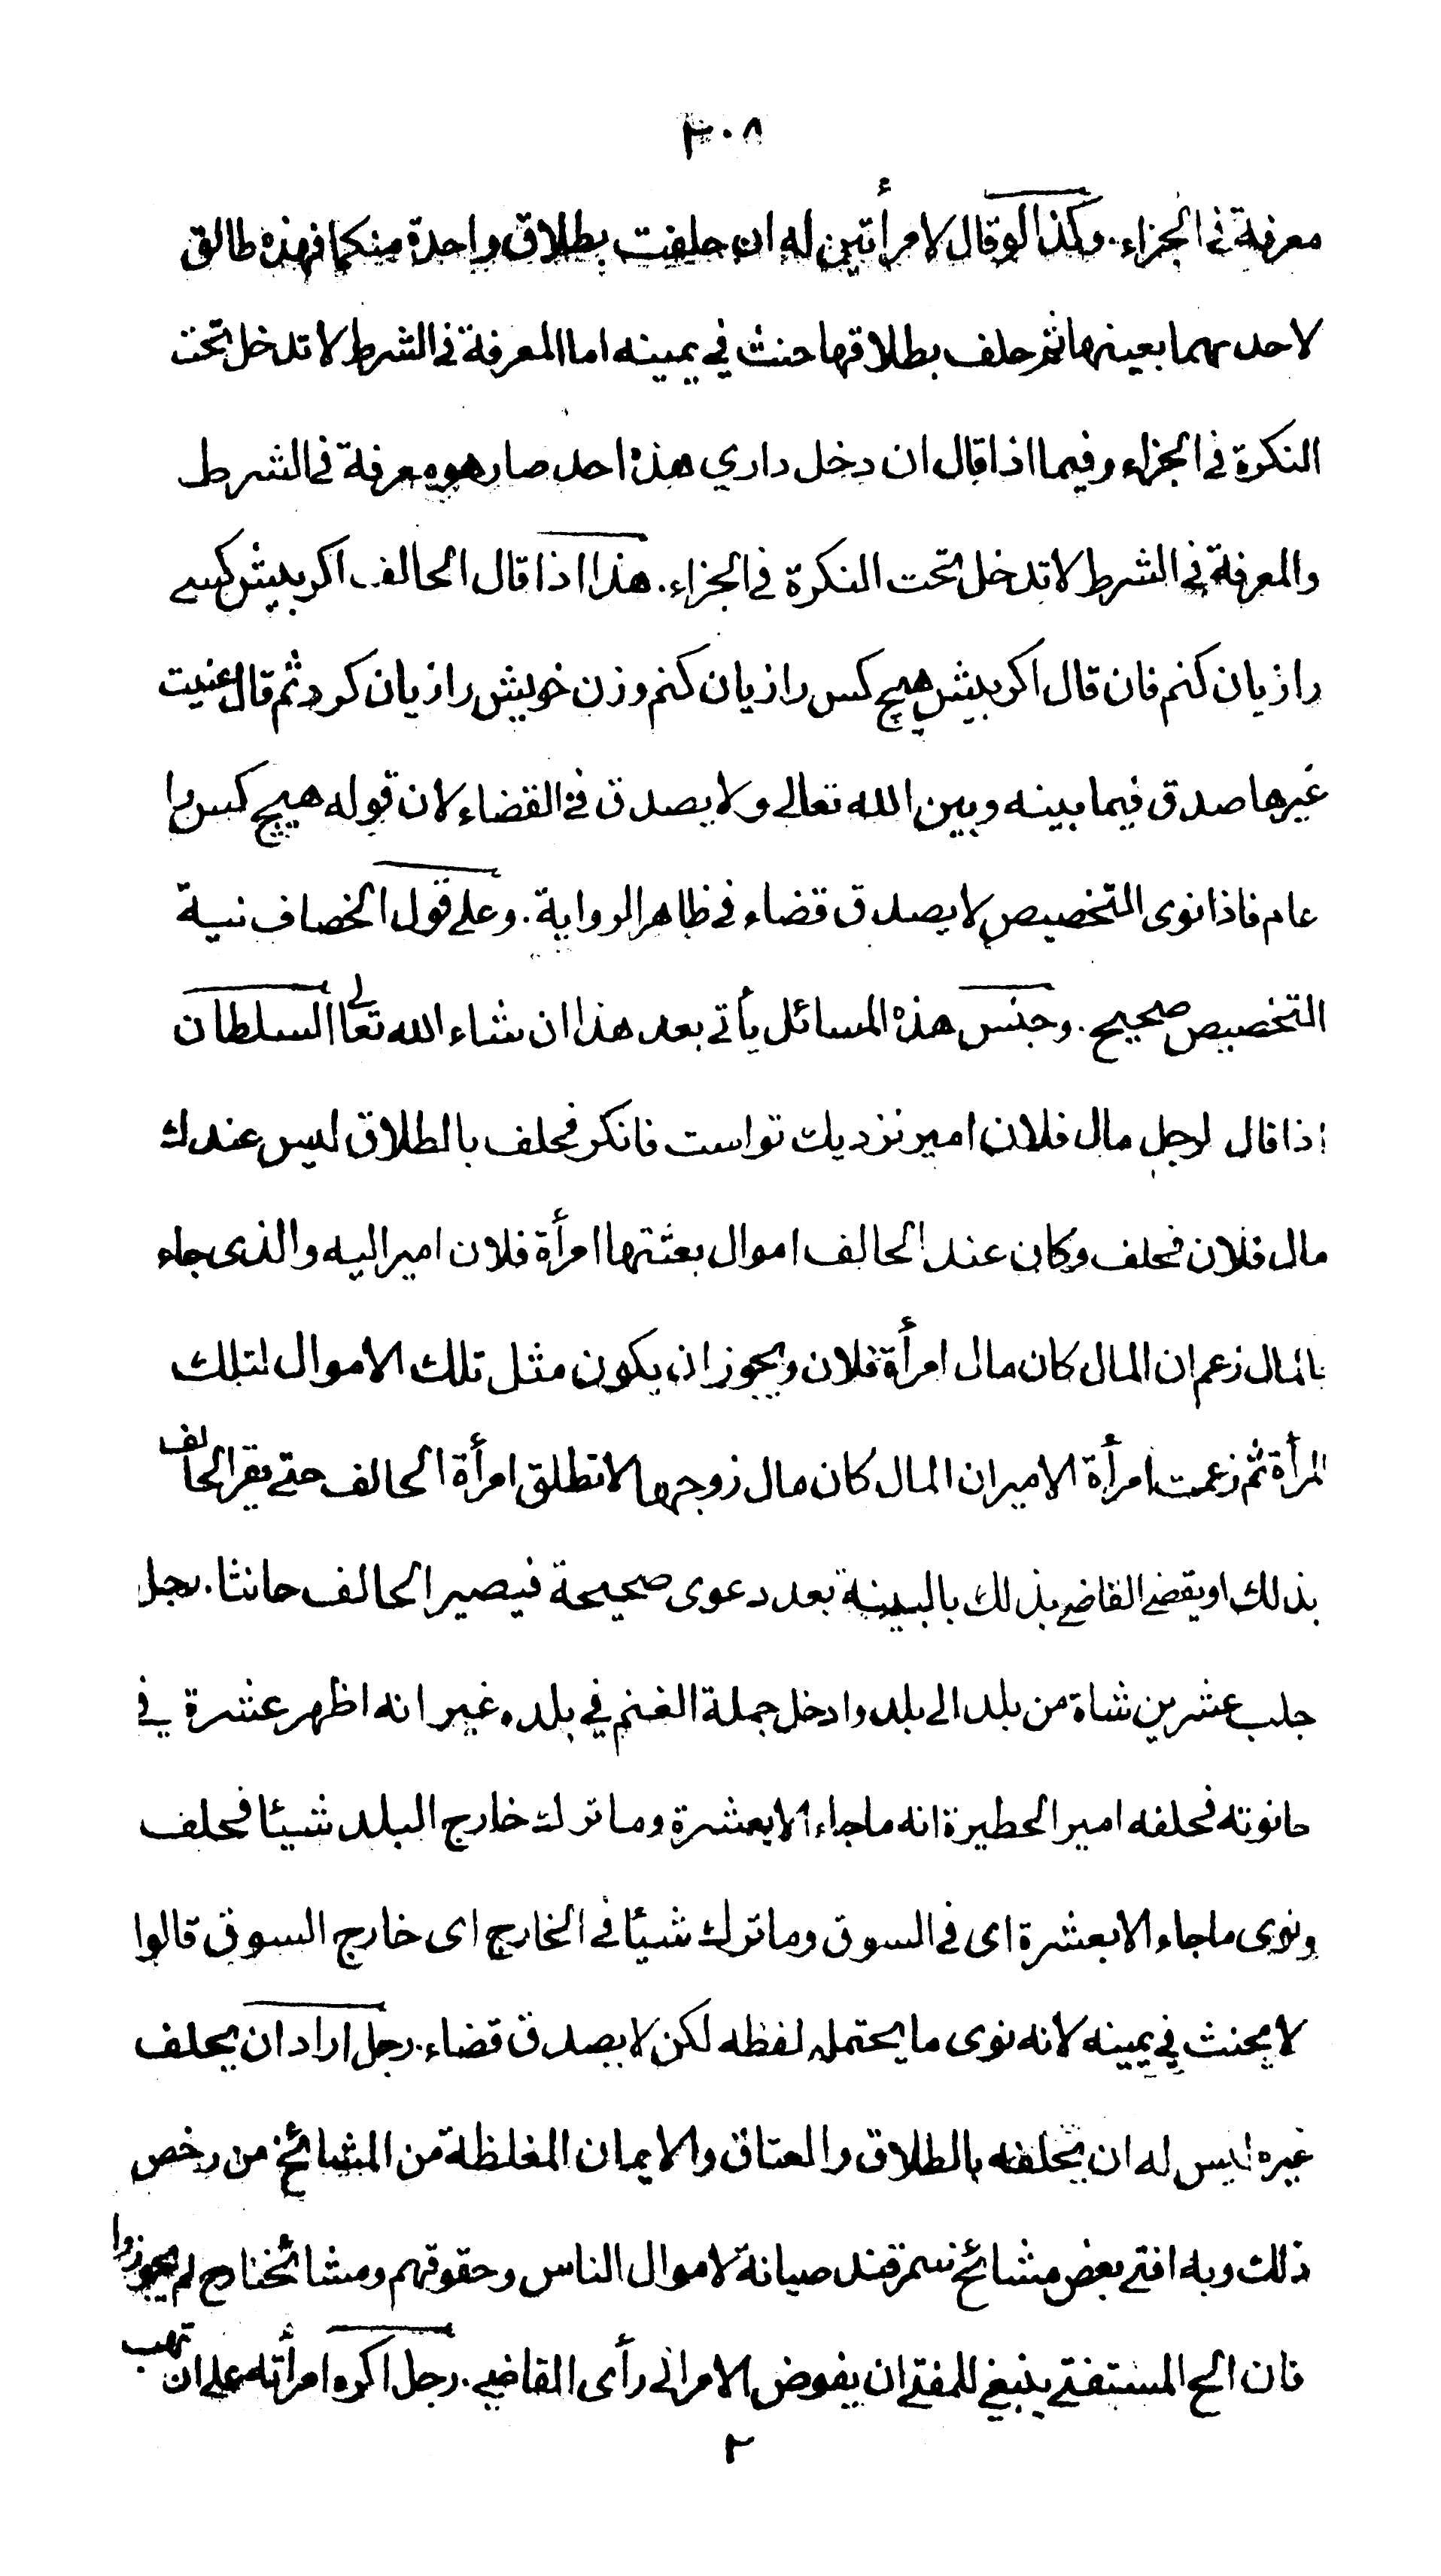 ٣٠٨
معرفة في الجزاء. وكذا لو قال لامرأتين له ان حلفت بطلاق واحدة منكما فهذه طالق
لاحدىهما بعينها ثم حلف بطلاقها حنث في يمينه اما المعرفة في الشرط لا تدخل تحت
النكرة في الجزاء وفيما اذا قال ان دخل داري هذه احد صار هو معرفة في الشرط
والمعرفة في الشرط لا تدخل تحت النكرة في الجزاء. هذا اذا قال الحالف اكر بيش كسے
را زيان كنم فان قال اكر بيش هيچ كس را زيان كنم وزن خويش را زيان كرد ثم قال عنيت
غيرها صدق فيما بينه وبين الله تعالى ولا يصدق في القضاء لان قوله هيچ كس را
عام فاذا نوى التخصيص لا يصدق قضاء في ظاهر الرواية. وعلى قول الخصاف نية
التخصيص صحيح. وجنس هذه المسائل يأتي بعد هذا ان شاء الله تعالى السلطان
اذا قال لرجل مال فلان امير نزديك تو است فانكر فحلف بالطلاق ليس عندك
مال فلان فحلف وكان عند الحالف اموال بعثتها امرأة فلان امير اليه والذى جاء
بالمال زعم ان المال كان مال امرأة فلان ويجوز ان يكون مثل تلك الاموال لتلك
المرأة ثم زعمت امرأة الامير ان المال كان مال زوجها لا تطلق امرأة الحالف حتى يقر الحالف
بذلك او يقضى القاضي بذلك بالبينة بعد دعوى صحيحة فيصير الحالف حانثا. رجل
جلب عشرين شاة من بلد الى بلد وادخل جملة الغنم في بلده غير انه اظهر عشرة في
حانوته فحلفه امير الحظيرة انه ما جاء الا بعشرة وما ترك خارج البلد شيئا فحلف
ونوى ما جاء الا بعشرة اى في السوق وما ترك شيئا في الخارج اى خارج السوق قالوا
لا يحنث في يمينه لانه نوى ما يحتمله لفظه لكن لا يصدق قضاء. رجل اراد ان يحلف
غيره ليس له ان يحلفه بالطلاق والعتاق والايمان المغلظة من المشائخ من رخص
ذلك وبه افتى بعض مشائخ سمرقند صيانة لاموال الناس وحقوقهم ومشائخنا رح لم يجوزوا
فان الح المستفتى ينبغي للمفتى ان يفوض الامر الى رأى القاضي. رجل اكره امرأته على ان تهب
٢